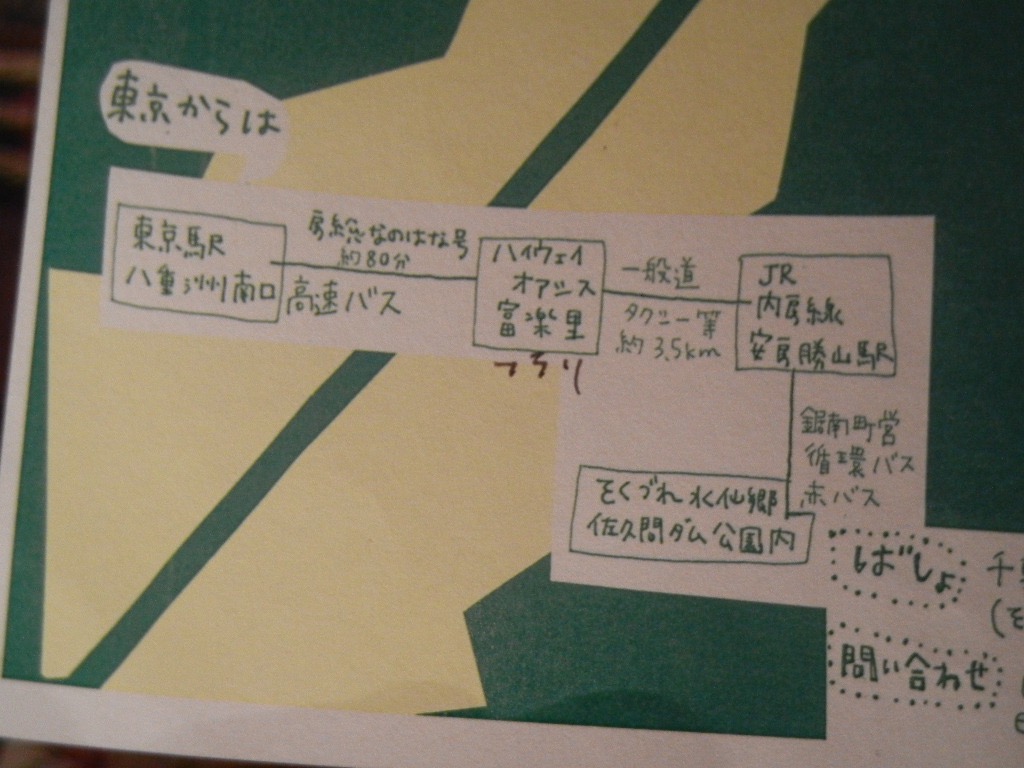 東京からは
東京駅
八重洲南口
房総なのはな号
約80分
高速バス
ハイウェイ
オアシス
富楽里
フラリ
一般道
タクシー等
約3.5km
JR
内房線
安房勝山駅
鋸南町営
循環バス
赤バス
をくづれ水仙郷
佐久間ダム公園内
ばしょ
千
(を
問い合わせ